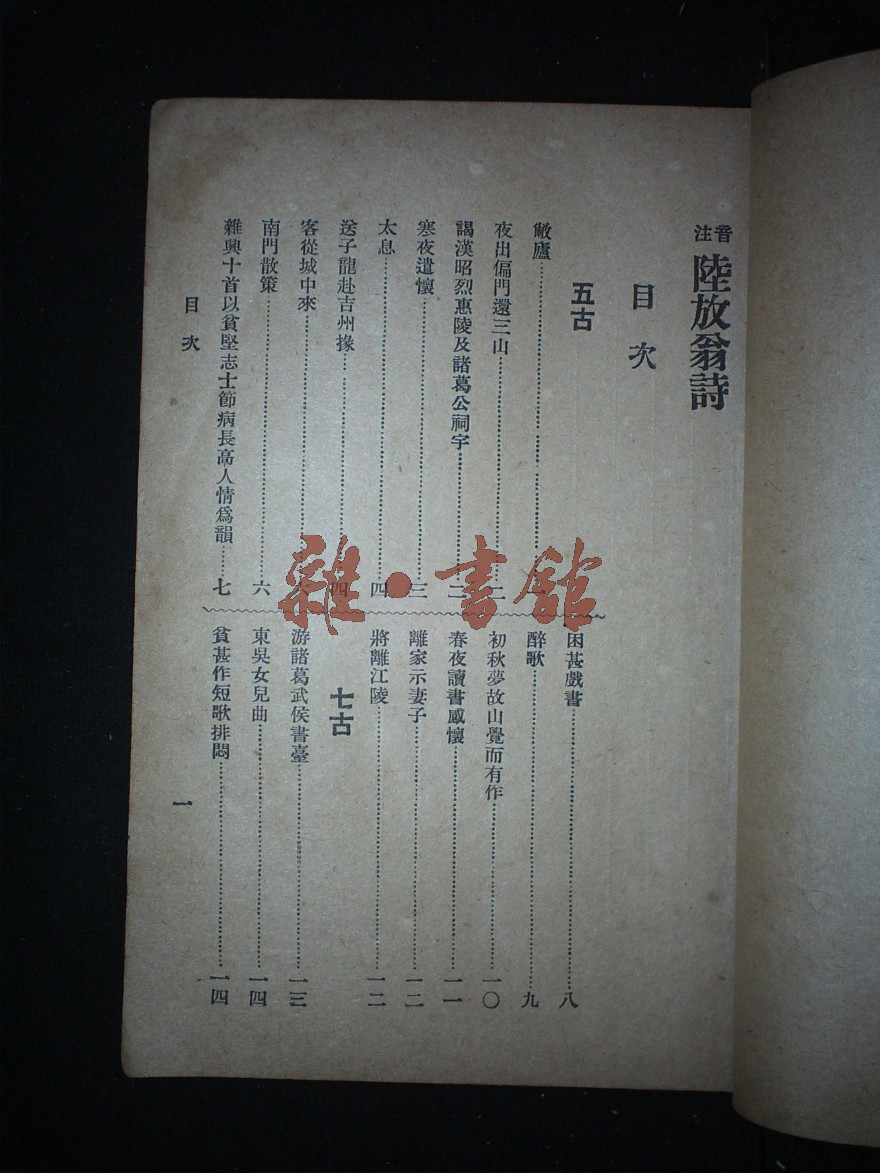 音注 陸放翁詩
目次
五古
敝廬……一
夜出偏門還三山……二
謁漢昭烈惠陵及諸葛公祠宇……二
寒夜遣懷……三
太息……四
送子龍赴吉州掾……四
客從城中來……
南門散策……六
雜興十首以貧堅志士節病長高人情爲韻……七
困甚戲書……八
醉歌……九
初秋夢故山覺而有作……一〇
春夜讀書感懷……一一
離家示妻子……一二
將離江陵……一二
七古
游諸葛武侯書臺……一三
東吳女兒曲……一四
貧甚作短歌排悶……一四
目次
一
雜·書館